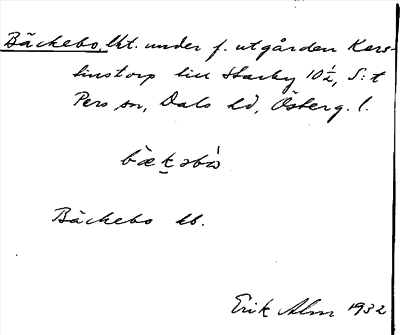 Bäckebo, lht. under f. utgården Kers-
tinstorp till Starby 10½, S:t
Pers sn, Dals hd, Österg. l.
Bäckebo kb.
Erik Alm 1932